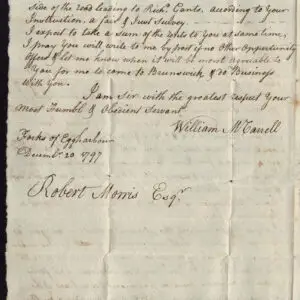 Side of the road leading to Richd. Cants, according to Your
Instruction, a fair & Just Survey.
I expect to take a sum of the to You at same time,
I pray You will write to me by post if no other Opportunity
Offers & let me know when it will be most agreeable to
You for me to come to Brunswick & do Business
With You.
I am Sir with the greatest respect Your
Most Humbl & Obedient Servant
William McCarrell
Forks of Eggharbour
Decembr. 20 1797
Robert Morris Esqr.